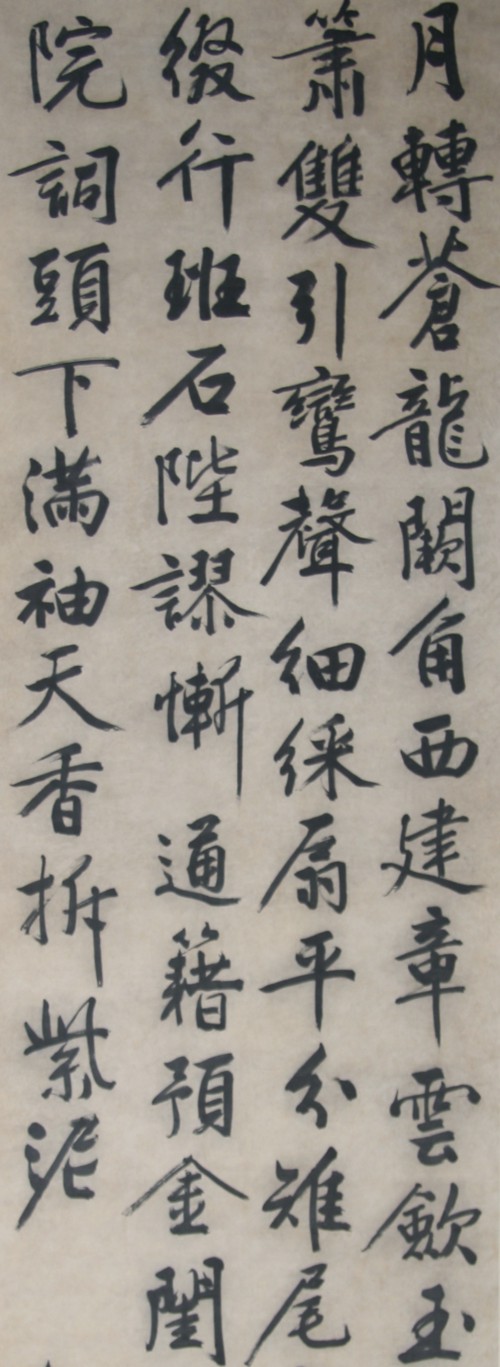 月轉蒼龍闕角西建章雲歛玉
簫雙引鸞聲細綵扇平分雉尾
綴行班石陛謬慚通籍預金閨
院詞頭下滿袖天香拆紫泥